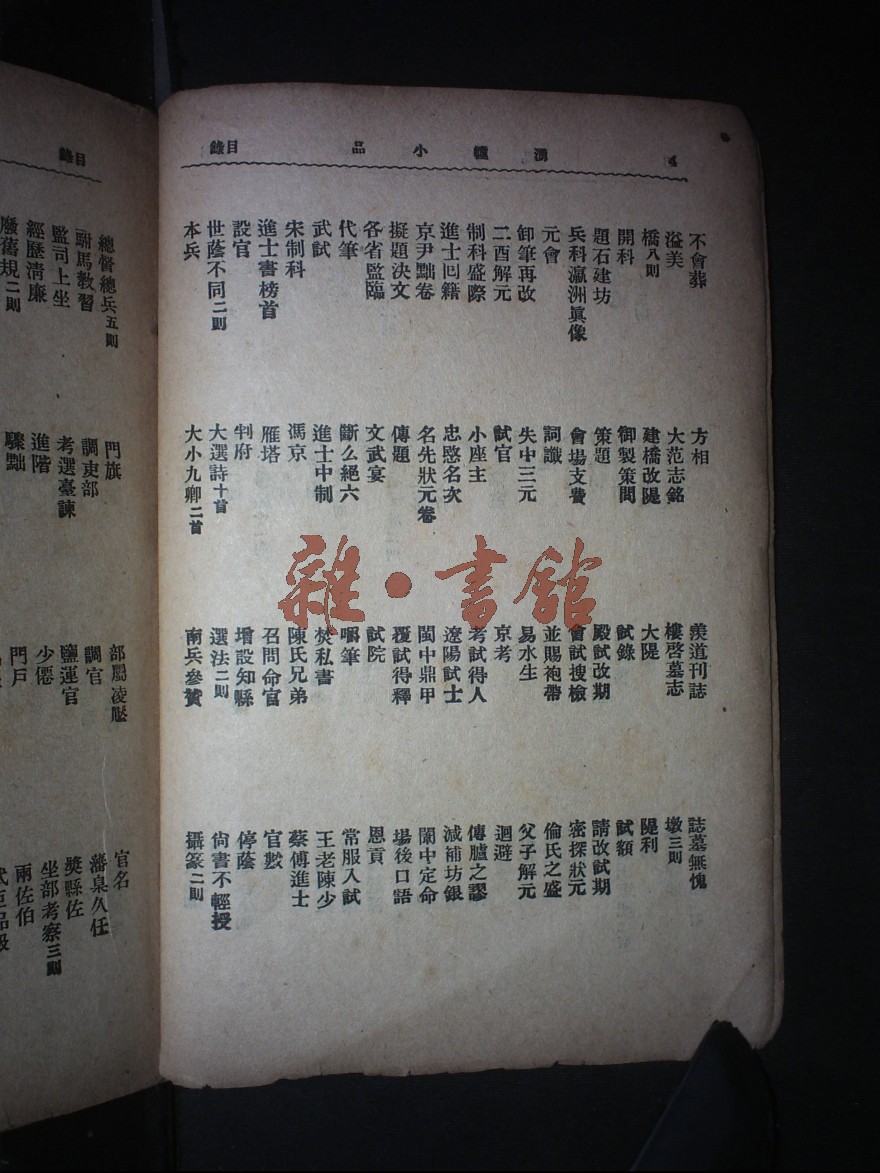 4 湧幢小品 目錄
不會葬 方相 羨道刊誌 誌墓無愧
溢美 大范志銘 樓啓墓志 墩三則
橋八則 建橋改隄 大隄 隄利
開科 御製策問 試錄 試額
題石建坊 策題 殿試改期 請改試期
兵科瀛洲眞像 會場支費 會試搜檢 密探狀元
元會 詞識 並賜袍帶 倫氏之盛
卸筆再改 失中三元 易水生 父子解元
二酉解元 試官 京考 迴避
制科盛際 小座主 考試得人 傳臚之謬
進士回籍 忠愍名次 遼陽試士 減補坊銀
京尹黜卷 名先狀元卷 閩中鼎甲 闈中定命
擬題決文 傳題 覆試得釋 場後口語
各省監臨 文武宴 試院 恩貢
代筆 斷么絕六 嚼筆 常服入試
武試 進士中制 焚私書 王老陳少
宋制科 馮京 陳氏兄弟 蔡傅進士
進士書榜首 雁塔 召問命官 官數
設官 判府 增設知縣 停蔭
世蔭不同二則 大選詩十首 選法二則 尙書不輕授
本兵 大小九卿二首 南兵參贊 攝篆二則
雜·書館
目錄
總督總兵五則 門旗 部屬凌壓 官名
駙馬教習 調吏部 調官 藩臬久任
監司上坐 考選臺諫 鹽運官 獎縣佐
經歷淸廉 進階 少僊 坐部考察三則
廢舊規二則 驟黜 門戶 兩佐伯